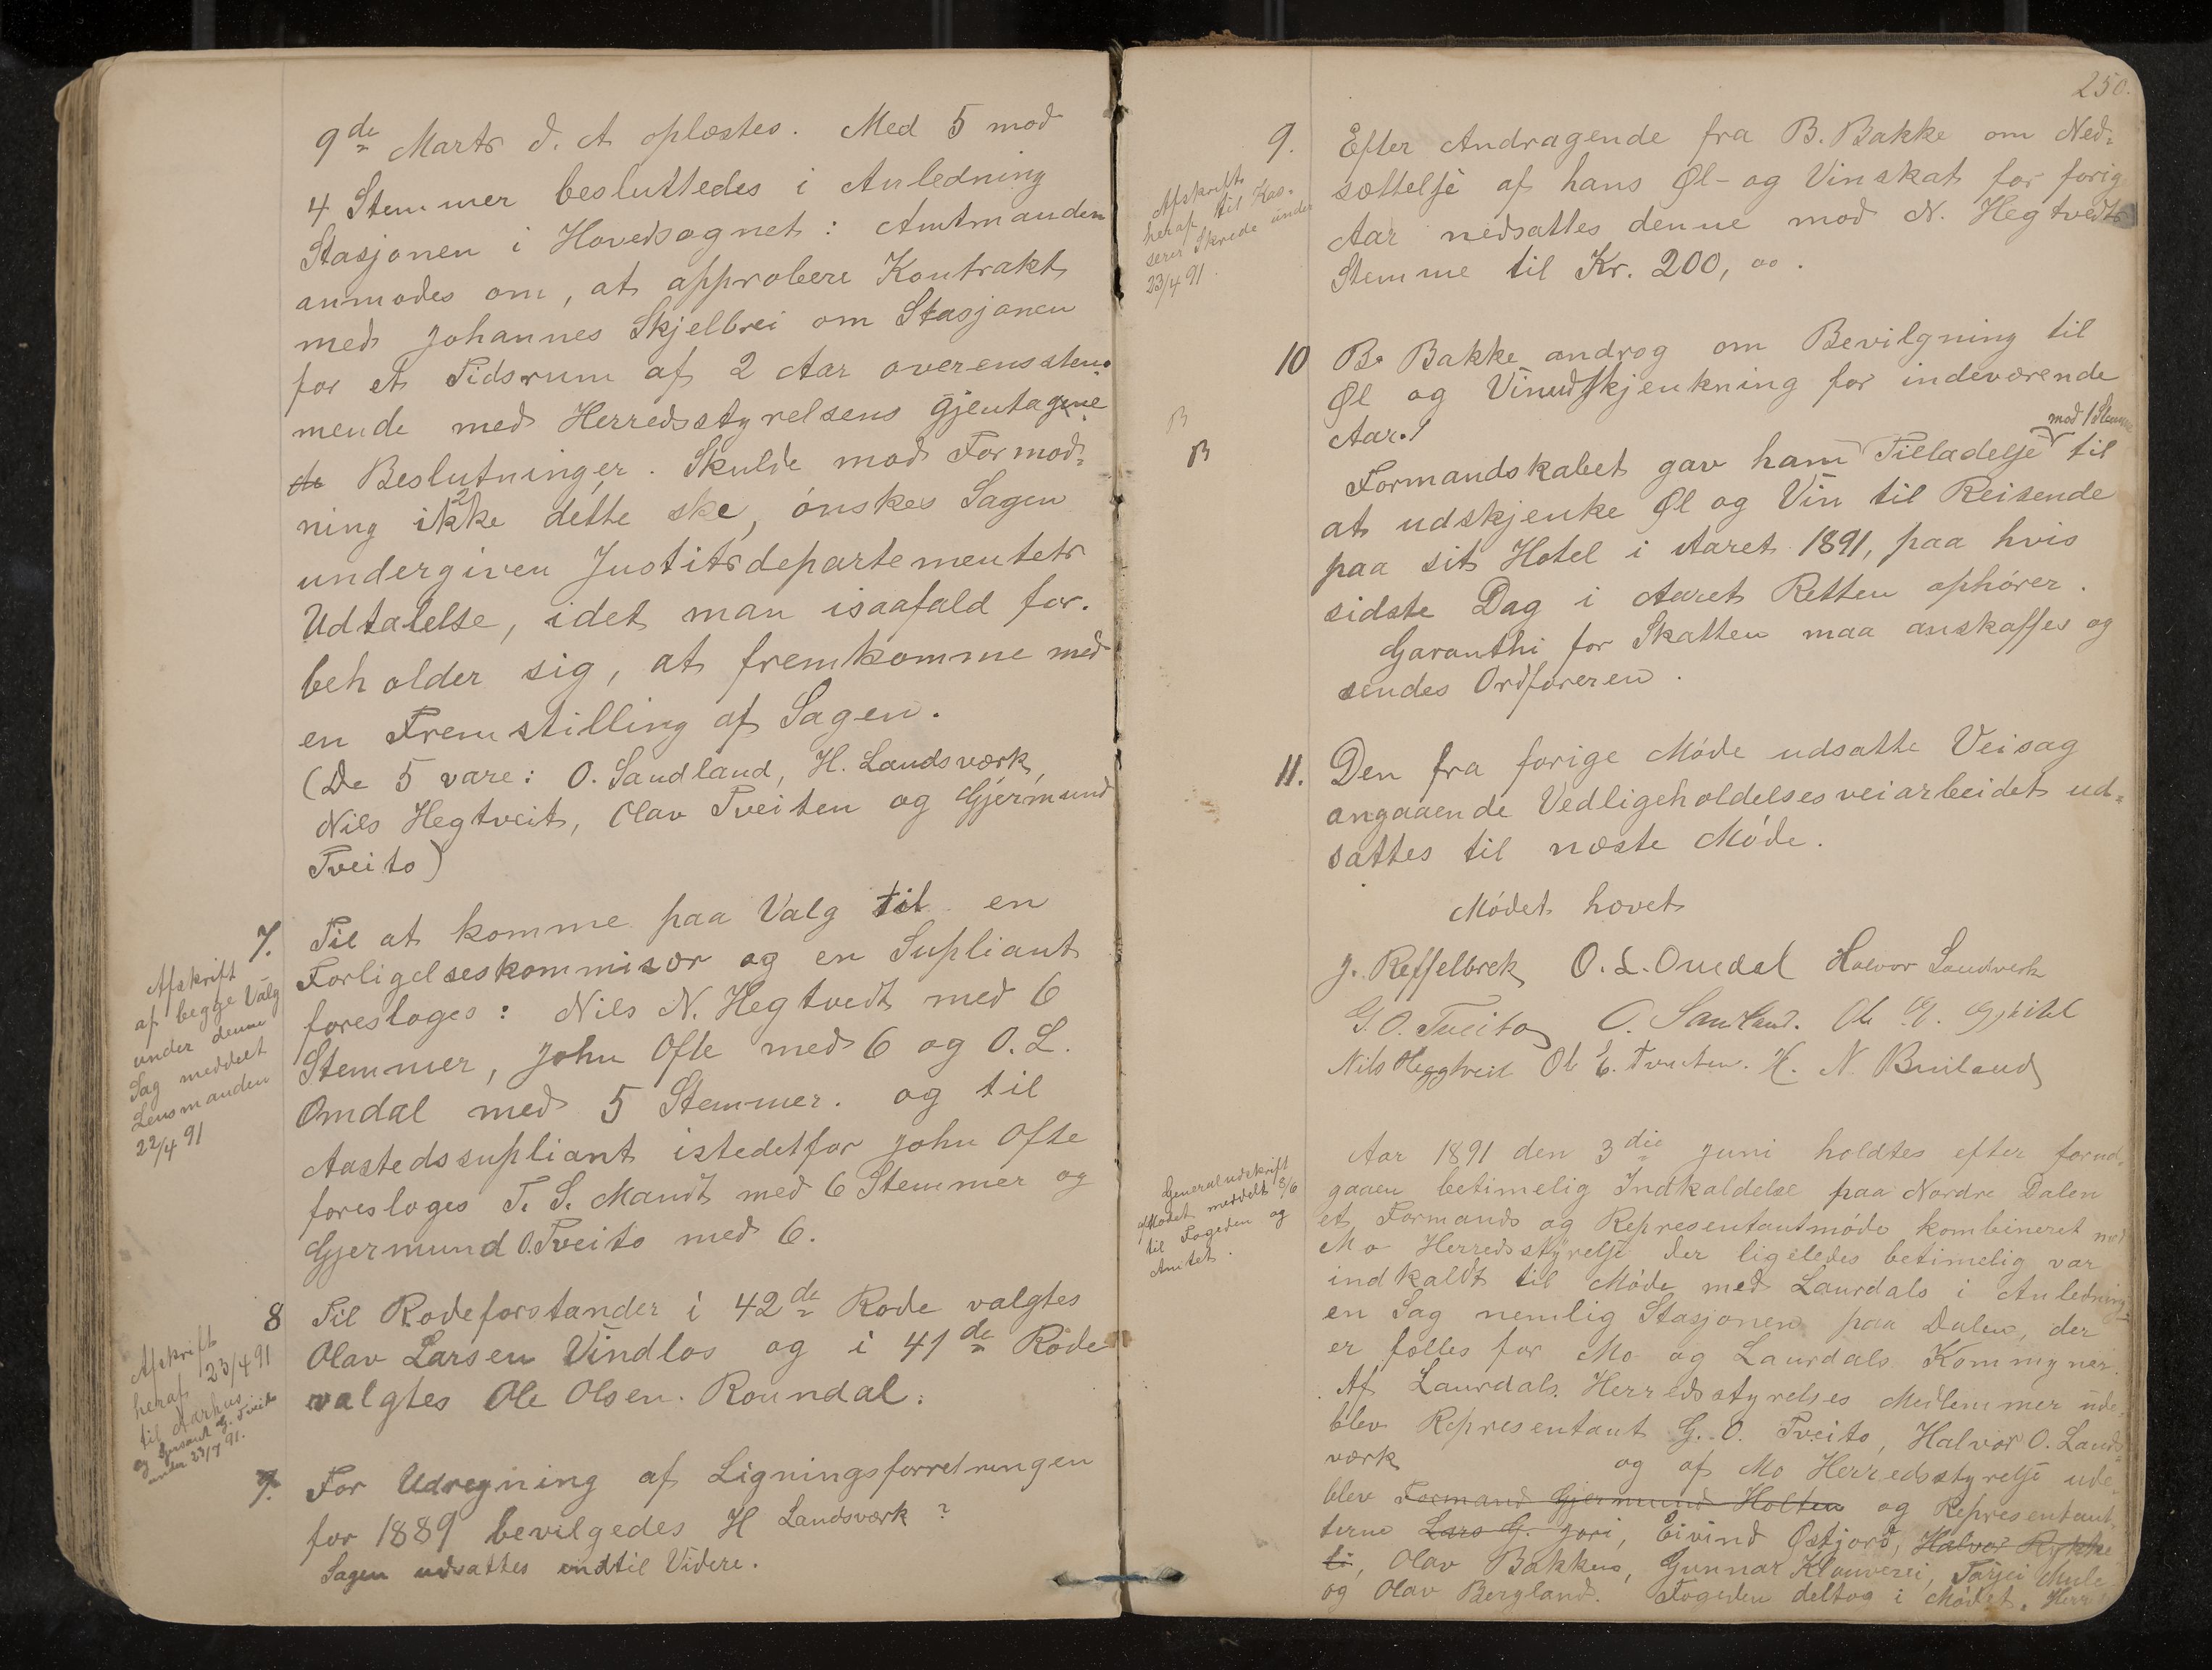 9de Marts d. A oplæstes. Med 5 mod
4 Stemmer besluttedes i Anledning
Stasjonen i Hovedsognet: Amtmanden
anmodes om, at approbere Kontrakt
med Johannes Skjelbrei om Stasjonen
for et Tidsrum af 2 Aar overensstem-
mende med Herredsstyrelsens gjentagne
de Beslutninger. Skulde mod Formod-
ning ikke dette ske, ønskes Sagen
undergiven Justitsdepartementets
Udtalelse, idet man isaafald for-
beholder sig, at fremkomme med
en Fremstilling af Sagen.
(De 5 vare: O. Sandland, H. Landsværk,
Nils Hegtveit, Olav Tveiten og Gjermund
Tveito)
7. Til at komme paa Valg til en
Forligelseskommisær og en Supliant
foresloges: Nils N. Hegtvedt med 6
Stemmer, John Ofte med 6 og O. L.
Omdal med 5 Stemmer. og til
Aastedssupliant istedetfor John Ofte
foresloges T. S. Mandt med 6 Stemmer og
Gjermund O. Tveito med 6.
Afskrift
af begge Valg
under denne
Sag meddelt
Lensmanden
22/4 91
8 Til Rodeforstander i 42de Rode valgtes
Olav Larsen Vindlos og i 41de Rode
valgtes Ole Olsen Roundal.
Afskrift
heraf 23/4 91
til Aarhus
og G. Tveito
under 23/4 91.
9. For Udregning af Ligningsforretningen
for 1889 bevilgedes H Landsværk ?
Sagen udsattes indtil Videre.
250.
9. Efter Andragende fra B. Bakke om Ned-
sættelse af hans Øl- og Vinskat for forig
Aar nedsattes denne mod N. Hegtvedts
Stemme til Kr. 200, oo.
Afskrift
heraf til Kas-
serer Skrede under
23/4 91.
10 B. Bakke androg om Bevilgning til
Øl og Vinudskjenkning for indeværende
Aar.
mod 1 Stemme
Formandskabet gav ham Tilladelse til
at udskjenke Øl og Vin til Reisende
paa sit Hotel i Aaret 1891, paa hvis
sidste Dag i Aaret Retten ophører.
Garanthi for Skatten maa anskaffes og
sendes Ordføreren.
B
B
11. Den fra forige Møde udsatte Veisag
angaaende Vedligeholdelsesveiarbeidet ud-
sattes til næste Møde.
Mødet hævet
O. L. Omdal Halvor Landsverk
G. O. Tveito O. Sandland.
Nils Heggtveit H. N. Builand
Aar 1891 den 3die Juni holdtes efter forud-
gaaen betimelig Indkaldelse paa Nordre Dalen
et Formands og Representantmøde kombineret med
Mo Herredsstyrelse der ligeledes betimelig var
indkaldt til Møde med Laurdals i Anledning
en Sag nemlig Stasjonen paa Dalen, der
er fælles for Mo og Laurdals Kommyner.
Af Laurdals Herredsstyrelses Medlemmer ude-
blev Representant G. O. Tveito, Halvor O. Lands-
værk og af Mo Herredsstyrelse ude-
blev Formand Gjermund Holten og Representant
terne Lars G. Jori, Eivind Østjord, Halvor Rykke
li, Olav Bakkus, Gunnar Klauverei, Tarjei Mule
og Olav Bergland. Fogeden deltog i Mødet. Herr
Generaludskrift
af Mødet meddelt 8/6
til Fogeden og
Amtet.